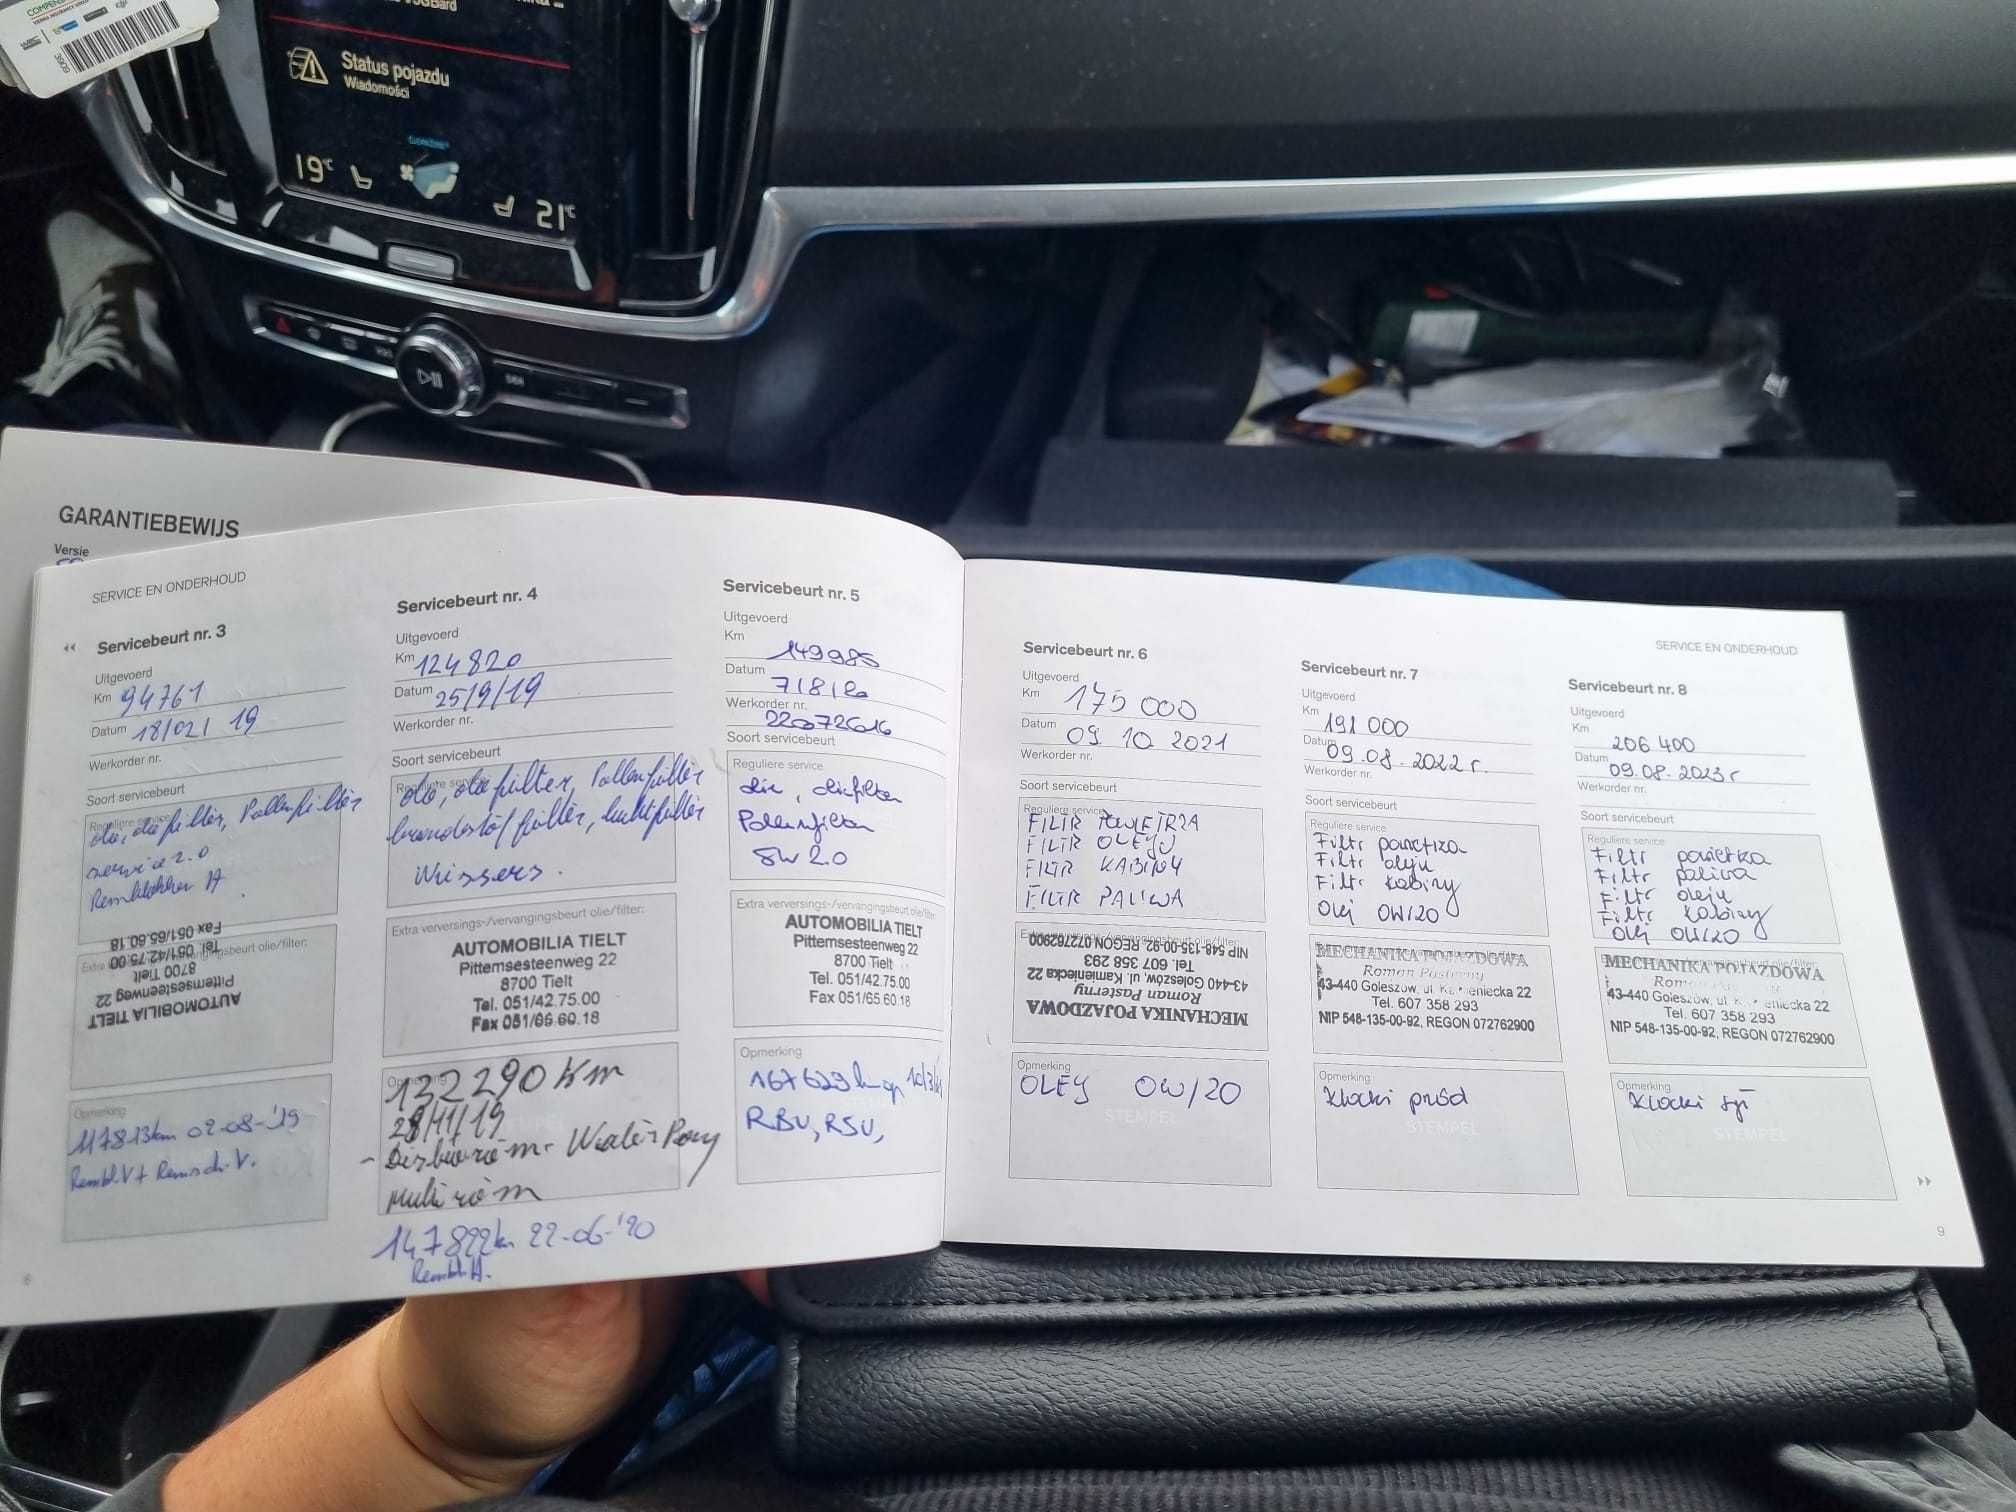 COMPENSA
Status pojazdu
Wiadomości
19°C
21°C
GARANTIEBEWIJS
Versie
SERVICE EN ONDERHOUD
Servicebeurt nr. 3
Uitgevoerd
Km 94761
Datum 18/02/ 19
Werkorder nr.
Soort servicebeurt
Reguliere service
olie, oliefilter, Pollenfilter
service 2.0
Remblokken A
Extra verversings-/vervangingsbeurt olie/filter:
AUTOMOBILIA TIELT
Pittemsesteenweg 22
8700 Tielt
Tel. 051/42.75.00
Fax 051/65.60.18
Opmerking
117813km 02-08-'19
Rembl.V + Remsch.V.
Servicebeurt nr. 4
Uitgevoerd
Km 124820
Datum 25/9/19
Werkorder nr.
Soort servicebeurt
Reguliere service
olie, oliefilter, Pollenfilter
brandstoffilter, luchtfilter
Wissers.
Extra verversings-/vervangingsbeurt olie/filter:
AUTOMOBILIA TIELT
Pittemsesteenweg 22
8700 Tielt
Tel. 051/42.75.00
Fax 051/65.60.18
Opmerking
132290 Km
28/11/19
- Distrib.riem
Multi riem
147822km 22-06-'20
Rembl.A.
Servicebeurt nr. 5
Uitgevoerd
Km 149985
Datum 7/8/20
Werkorder nr. 220072616
Soort servicebeurt
Reguliere service
olie, oliefilter
Pollenfilter
SW 2.0
Extra verversings-/vervangingsbeurt olie/filter:
AUTOMOBILIA TIELT
Pittemsesteenweg 22
8700 Tielt
Tel. 051/42.75.00
Fax 051/65.60.18
Opmerking
167629km op 10/3/21
RBV, RSV,
SERVICE EN ONDERHOUD
Servicebeurt nr. 6
Uitgevoerd
Km 175 000
Datum 09. 10. 2021
Werkorder nr.
Soort servicebeurt
Reguliere service
FILTR POWIETRZA
FILTR OLEJU
FILTR KABINY
FILTR PALIWA
Extra verversings-/vervangingsbeurt olie/filter:
MECHANIKA POJAZDOWA
Roman Pasterny
43-440 Goleszów, ul. Kamieniecka 22
Tel. 607 358 293
NIP 548-135-00-92, REGON 072762900
Opmerking
OLEJ 0W/20
STEMPEL
Servicebeurt nr. 7
Uitgevoerd
Km 191 000
Datum 09.08.2022 r.
Werkorder nr.
Soort servicebeurt
Reguliere service
Filtr powietrza
Filtr oleju
Filtr kabiny
Olej 0W/20
MECHANIKA POJAZDOWA
Roman Pasterny
43-440 Goleszów, ul. Kamieniecka 22
Tel. 607 358 293
NIP 548-135-00-92, REGON 072762900
Opmerking
Klocki przód
STEMPEL
Servicebeurt nr. 8
Uitgevoerd
Km 206 400
Datum 09.08.2023 r
Werkorder nr.
Soort servicebeurt
Reguliere service
Filtr powietrza
Filtr paliwa
Filtr oleju
Filtr kabiny
Olej 0W/20
MECHANIKA POJAZDOWA
43-440 Goleszów, ul. Kamieniecka 22
Tel. 607 358 293
NIP 548-135-00-92, REGON 072762900
Opmerking
Klocki tył
STEMPEL
8
9